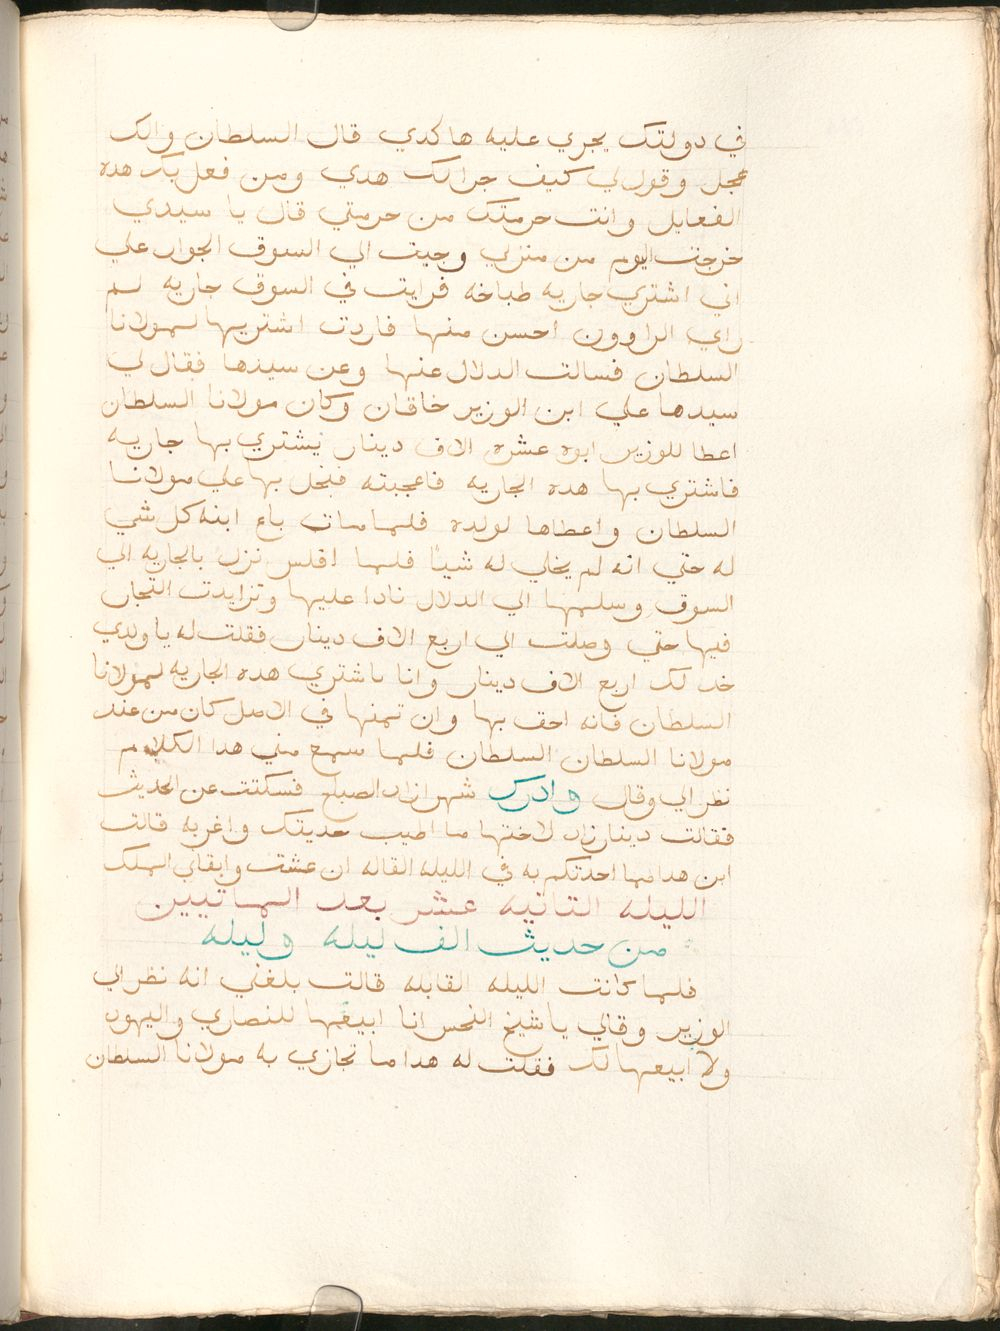 في دولتك يجري عليه هاكدي قال السلطان والك
عجل وقول لي كيف جرالك هدي ومن فعل بك هده
الفعايل وانت حرمتك من حرمتي قال يا سيدي
خرجت اليوم من منزلي وجيت الي السوق الجوار علي
اني اشتري جاريه طباخه فرايت في السوق جاريه لم
راي الراوون احسن منها فاردت اشتريها لمولانا
السلطان فسالت الدلال عنها وعن سيدها فقال لي
سيدها علي ابن الوزير خاقان وكان مولانا السلطان
اعطا للوزير ابوه عشره الاف دينار يشتري بها جاريه
فاشتري بها هده الجاريه فاعجبته فبخل بها علي مولانا
السلطان واعطاها لولده فلما مات باع ابنه كل شي
له حتي انه لم يخلي له شيا فلما افلس نزل بالجاريه الي
السوق وسلمها الي الدلال نادا عليها وتزايدت التجار
فيها حتي وصلت الي اربع الاف دينار فقلت له يا ولدي
خد لك اربع الاف دينار وانا باشتري هده الجاريه لمولانا
السلطان فانه احق بها وان تمنها في الاصل كان من عند
مولانا السلطان السلطان فلما سمع مني هدا الكلام
نظر الي وقال وادرك شهرازاد الصباح فسكتت عن الحديث
فقالت دينارزاد لاختها ما اطيب حديتك واغربه قالت
اين هدا مما احدتكم به في الليله القاله ان عشت وابقاني الملك
الليله التانيه عشر بعد الماتيين
من حديث الف ليله وليله
فلما كانت الليله القابله قالت بلغني انه نظر الي
الوزير وقالي يا شيخ النحس انا ابيعها للنصاري واليهود
ولا ابيعها لك فقلت له هدا ما تجازي به مولانا السلطان